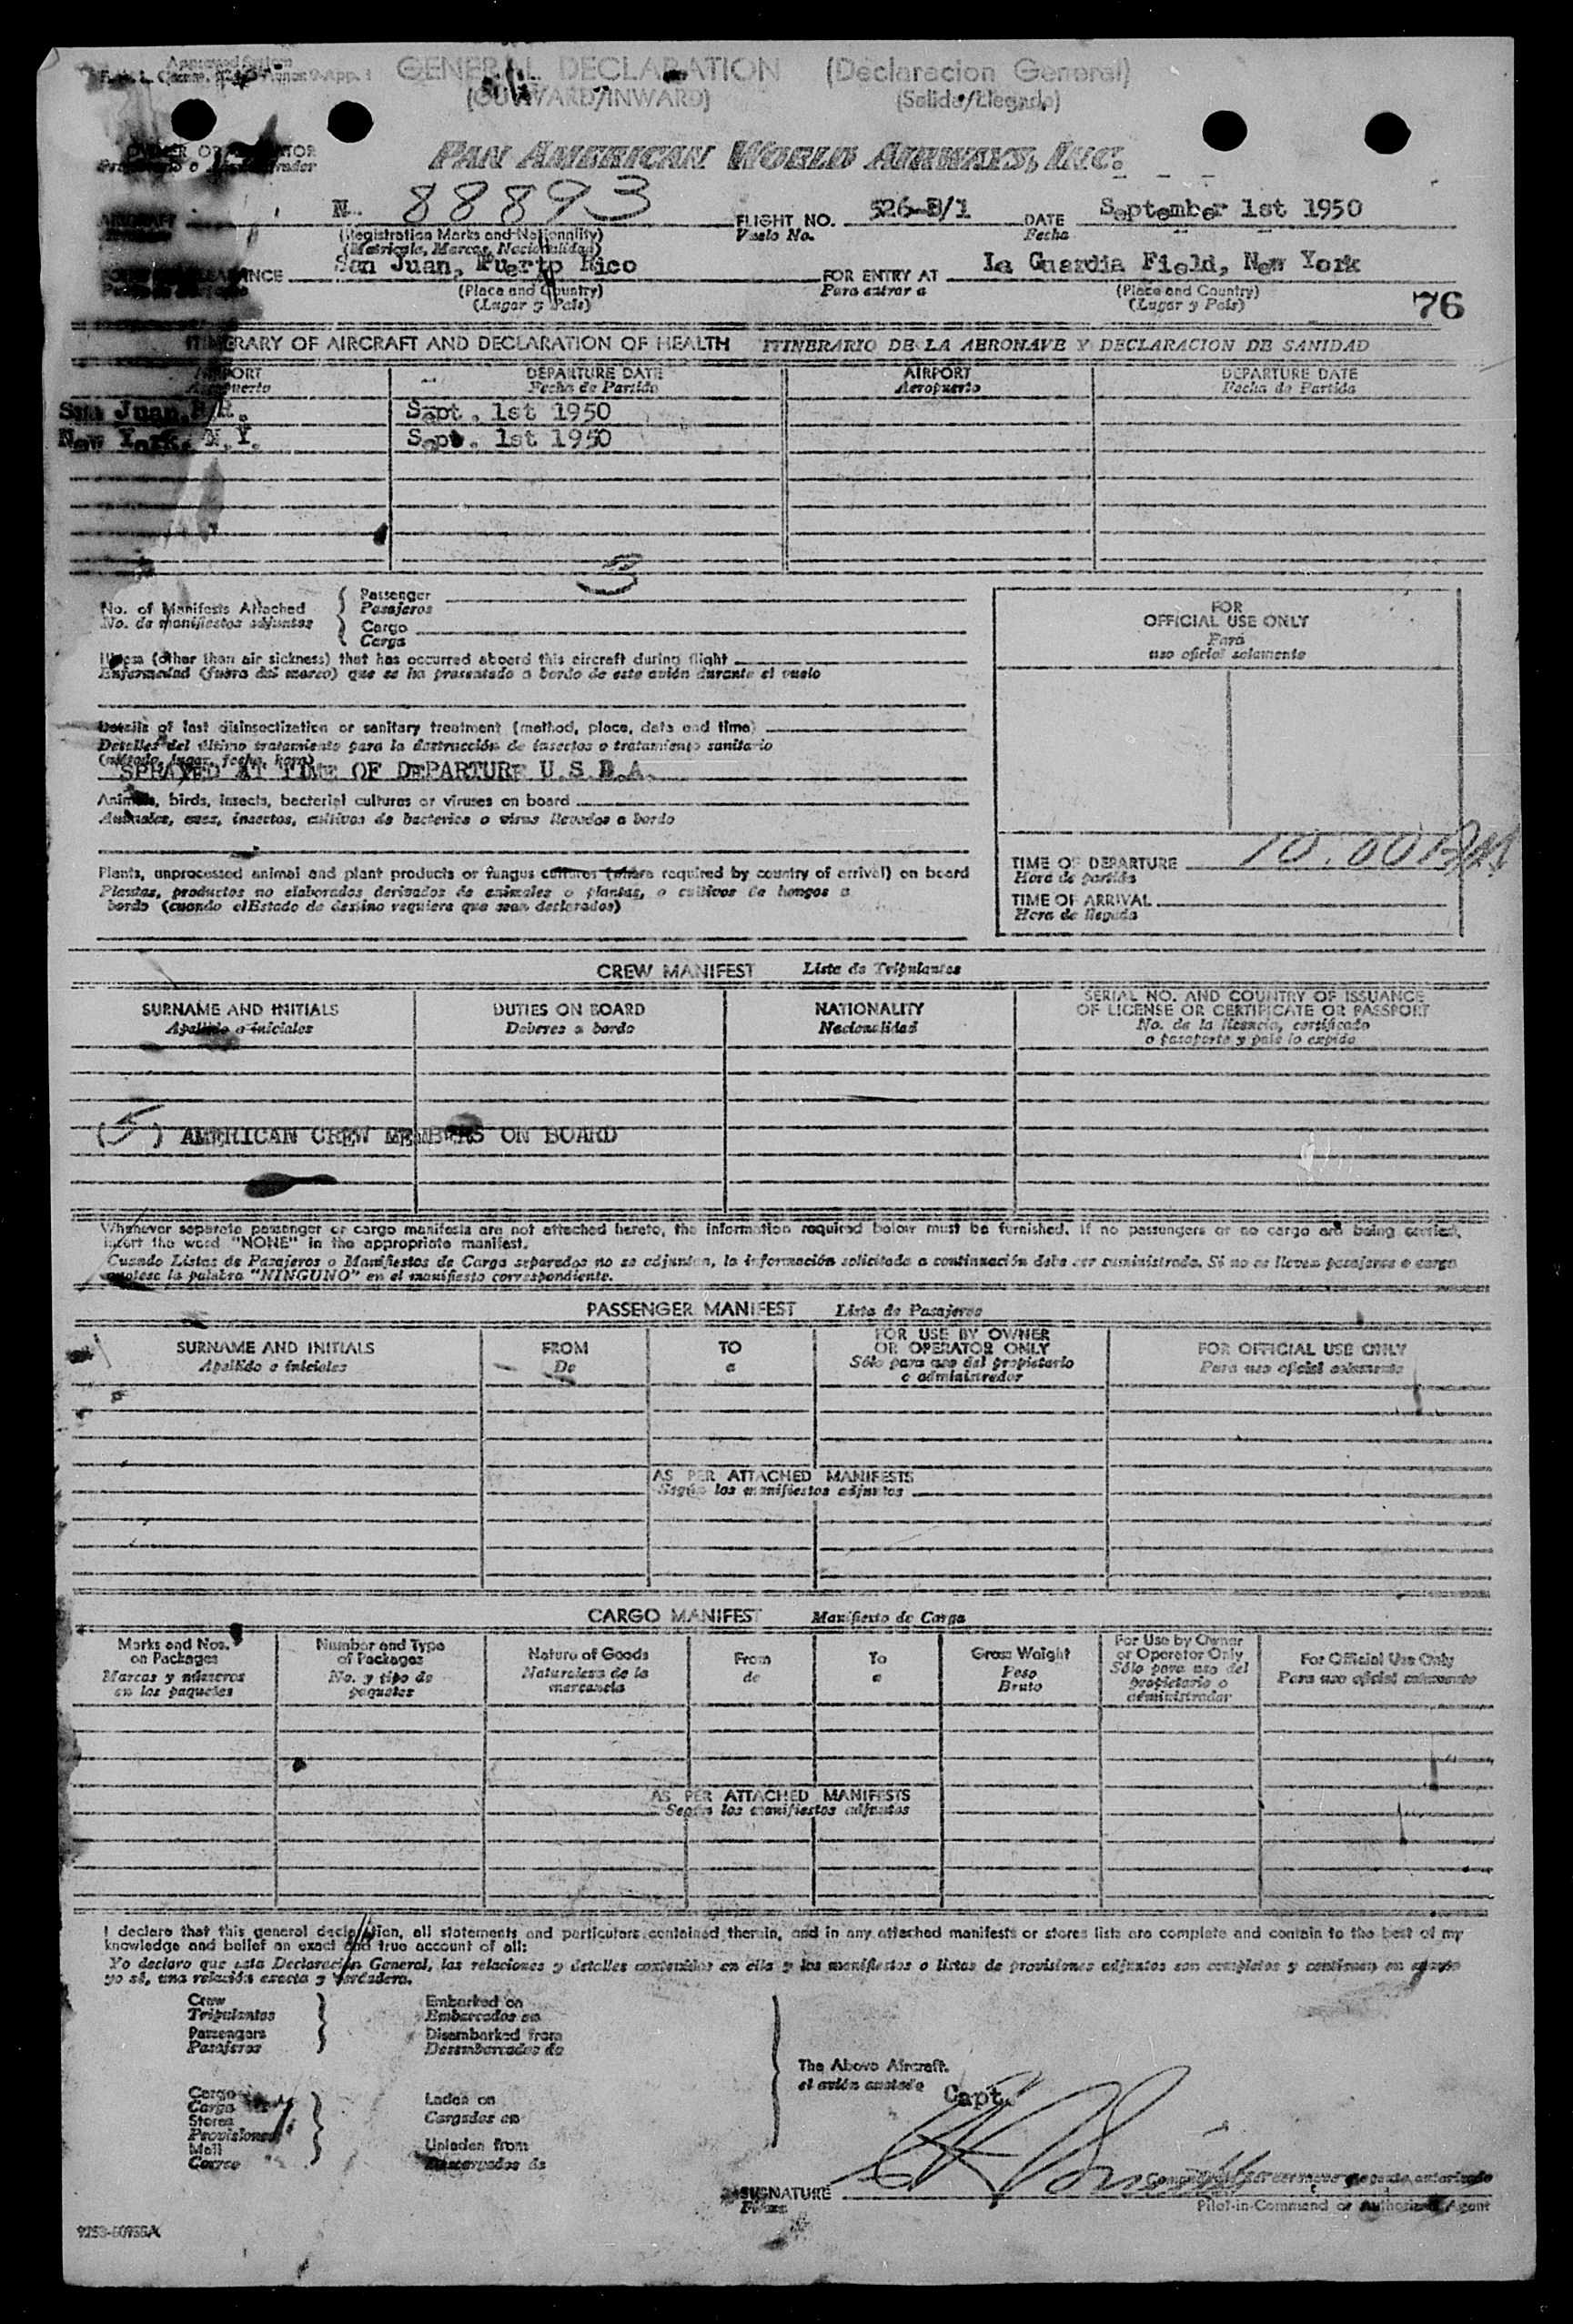 GENERAL DECLARATION (Declaracion General)
(OUTWARD/INWARD) (Salida/Llegada)
OWNER OR OPERATOR
PAN AMERICAN WORLD AIRWAYS, INC.
AIRCRAFT N 88893 FLIGHT NO. 526-B/1 DATE September 1st 1950
(Registration Marks and Nationality) Vuelo No. Fecha
(Matricula, Marcas, Nacionalidad)
San Juan, Puerto Rico FOR ENTRY AT La Guardia Field, New York
(Place and Country) Para entrar a (Place and Country)
(Lugar y País) (Lugar y País)
76
ITINERARY OF AIRCRAFT AND DECLARATION OF HEALTH ITINERARIO DE LA AERONAVE Y DECLARACION DE SANIDAD
AIRPORT DEPARTURE DATE AIRPORT DEPARTURE DATE
Aeropuerto Fecha de Partida Aeropuerto Fecha de Partida
San Juan, P.R. Sept. 1st 1950
New York, N.Y. Sept. 1st 1950
3
No. of Manifests Attached Passenger
No. de manifiestos adjuntos Pasajeros
Cargo
Carga
Illness (other than air sickness) that has occurred aboard this aircraft during flight
Enfermedad (fuera del mareo) que se ha presentado a bordo de este avión durante el vuelo
Details of last disinsectization or sanitary treatment (method, place, date and time)
Detalles del último tratamiento para la destrucción de insectos o tratamiento sanitario
(método, lugar, fecha, hora)
SPRAYED AT TIME OF DEPARTURE U.S.D.A.
Animals, birds, insects, bacterial cultures or viruses on board
Animales, aves, insectos, cultivos de bacterias o virus llevados a bordo
Plants, unprocessed animal and plant products or fungus cultures (where required by country of arrival) on board
Plantas, productos no elaborados derivados de animales o plantas, o cultivos de hongos a
bordo (cuando el Estado de destino requiera que sean declarados)
FOR
OFFICIAL USE ONLY
Para
uso oficial solamente
TIME OF DEPARTURE 10.00 PM
Hora de partida
TIME OF ARRIVAL
Hora de llegada
CREW MANIFEST Lista de Tripulantes
SURNAME AND INITIALS DUTIES ON BOARD NATIONALITY SERIAL NO. AND COUNTRY OF ISSUANCE
OF LICENSE OR CERTIFICATE OR PASSPORT
Apellido e iniciales Deberes a bordo Nacionalidad No. de la licencia, certificado
o pasaporte y país lo expide
(5) AMERICAN CREW MEMBERS ON BOARD
Whenever separate passenger or cargo manifests are not attached hereto, the information required below must be furnished. If no passengers or no cargo are being carried,
insert the word "NONE" in the appropriate manifest.
Cuando Listas de Pasajeros o Manifiestos de Carga separados no se adjuntan, la información solicitada a continuación debe ser suministrada. Si no se llevan pasajeros o carga
anótese la palabra "NINGUNO" en el manifiesto correspondiente.
PASSENGER MANIFEST Lista de Pasajeros
SURNAME AND INITIALS FROM TO FOR USE BY OWNER FOR OFFICIAL USE ONLY
OR OPERATOR ONLY
Apellido e iniciales De a Sólo para uso del propietario Para uso oficial solamente
o administrador
AS PER ATTACHED MANIFESTS
Según los manifiestos adjuntos
CARGO MANIFEST Manifiesto de Carga
Marks and Nos. Number and Type Nature of Goods From To Gross Weight For Use by Owner For Official Use Only
on Packages of Packages or Operator Only
Marcas y números No. y tipo de Naturaleza de la de a Peso Sólo para uso del Para uso oficial solamente
en los paquetes paquetes mercancía Bruto propietario o
administrador
AS PER ATTACHED MANIFESTS
Según los manifiestos adjuntos
I declare that this general declaration, all statements and particulars contained therein, and in any attached manifests or stores lists are complete and contain to the best of my
knowledge and belief an exact and true account of all:
Yo declaro que esta Declaración General, las relaciones y detalles contenidos en ella y los manifiestos o listas de provisiones adjuntos son completos y contienen en cuanto
yo sé, una relación exacta y verdadera.
Crew Embarked on
Tripulantes Embarcados en
Passengers Disembarked from
Pasajeros Desembarcados de
The Above Aircraft.
el avión anotado
Capt.
Cargo Laden on
Carga Cargados en
Stores
Provisiones
Mail Unladen from
Correo Descargados de
SIGNATURE
Firma
Pilot-in-Command or Authorized Agent